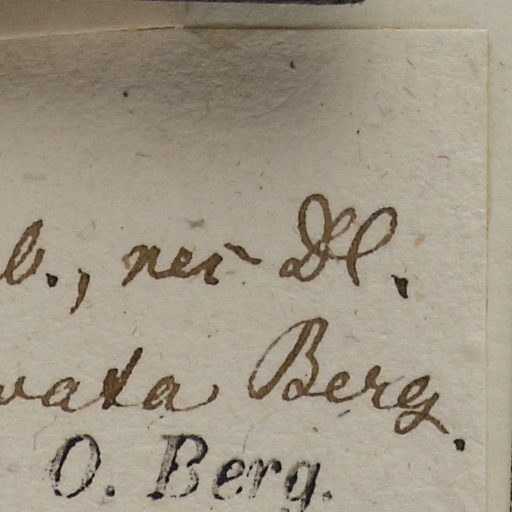 b., nec Dl.
vata Berg.
O. Berg.